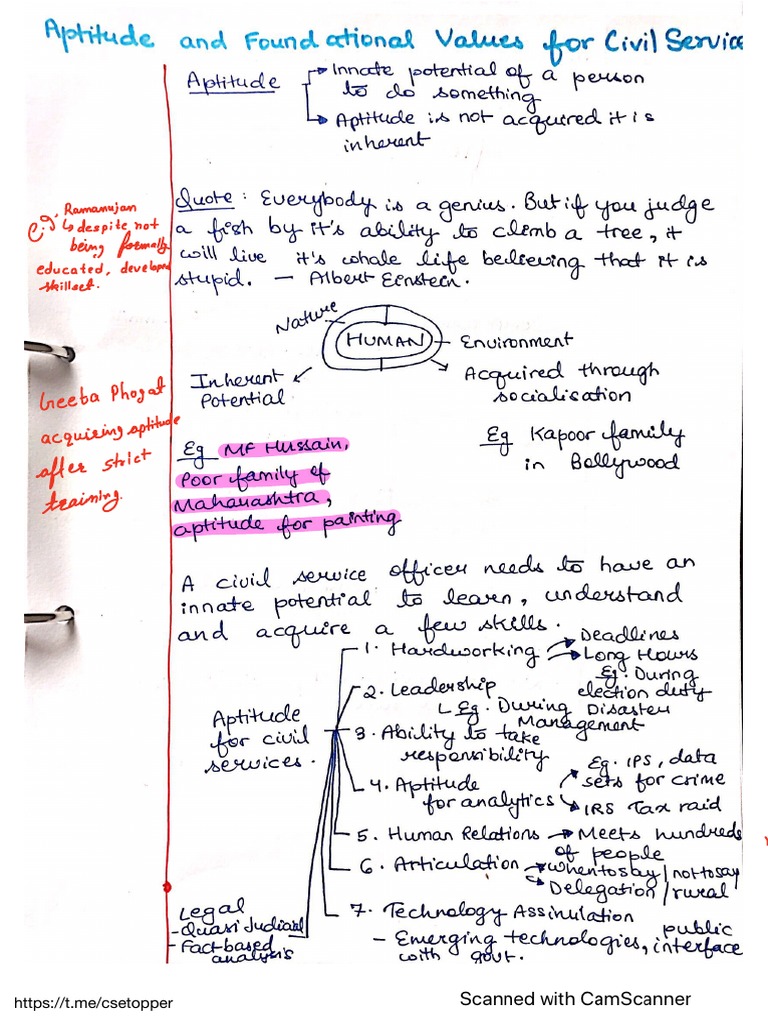 Aptitude and Foundational Values for Civil Service
Aptitude
→ Innate potential of a person
to do something
→ Aptitude is not acquired it is
inherent
Quote: Everybody is a genius. But if you judge
a fish by it's ability to climb a tree, it
will live it's whole life believing that it is
stupid. — Albert Eenstein.
e.g. Ramanujan
↳ despite not
being formally
educated, developed
skillset.
Nature
HUMAN
Environment
Inherent
Potential
Acquired through
socialisation
Geeba Phogat
acquiring aptitude
after strict
training.
Eg MF Hussain,
Poor family of
Maharashtra,
aptitude for painting
Eg Kapoor family
in Bollywood
A civil service officer needs to have an
innate potential to learn, understand
and acquire a few skills.
Aptitude
for civil
services.
1. Hardworking
→ Deadlines
→ Long Hours
Eg. During
election duty
2. Leadership
Eg. During Disaster
Management
3. Ability to take
responsibility
4. Aptitude
for analytics
Eg. IPS, data
sets for crime
IRS Tax raid
5. Human Relations → Meets hundreds
of people
6. Articulation → When to say/not to say
→ Delegation/rural
7. Technology Assinulation
- Emerging technologies, public interface
with govt.
Legal
- Quasi Judicial
- Fact based
analysis
https://t.me/csetopper
Scanned with CamScanner